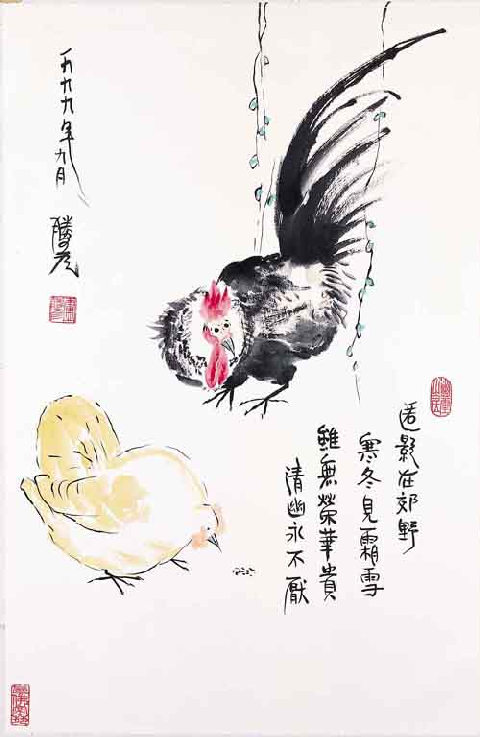 匿影在郊野
寒冬見霜雪
雖無榮華貴
清幽永不厭
一九九九年九月